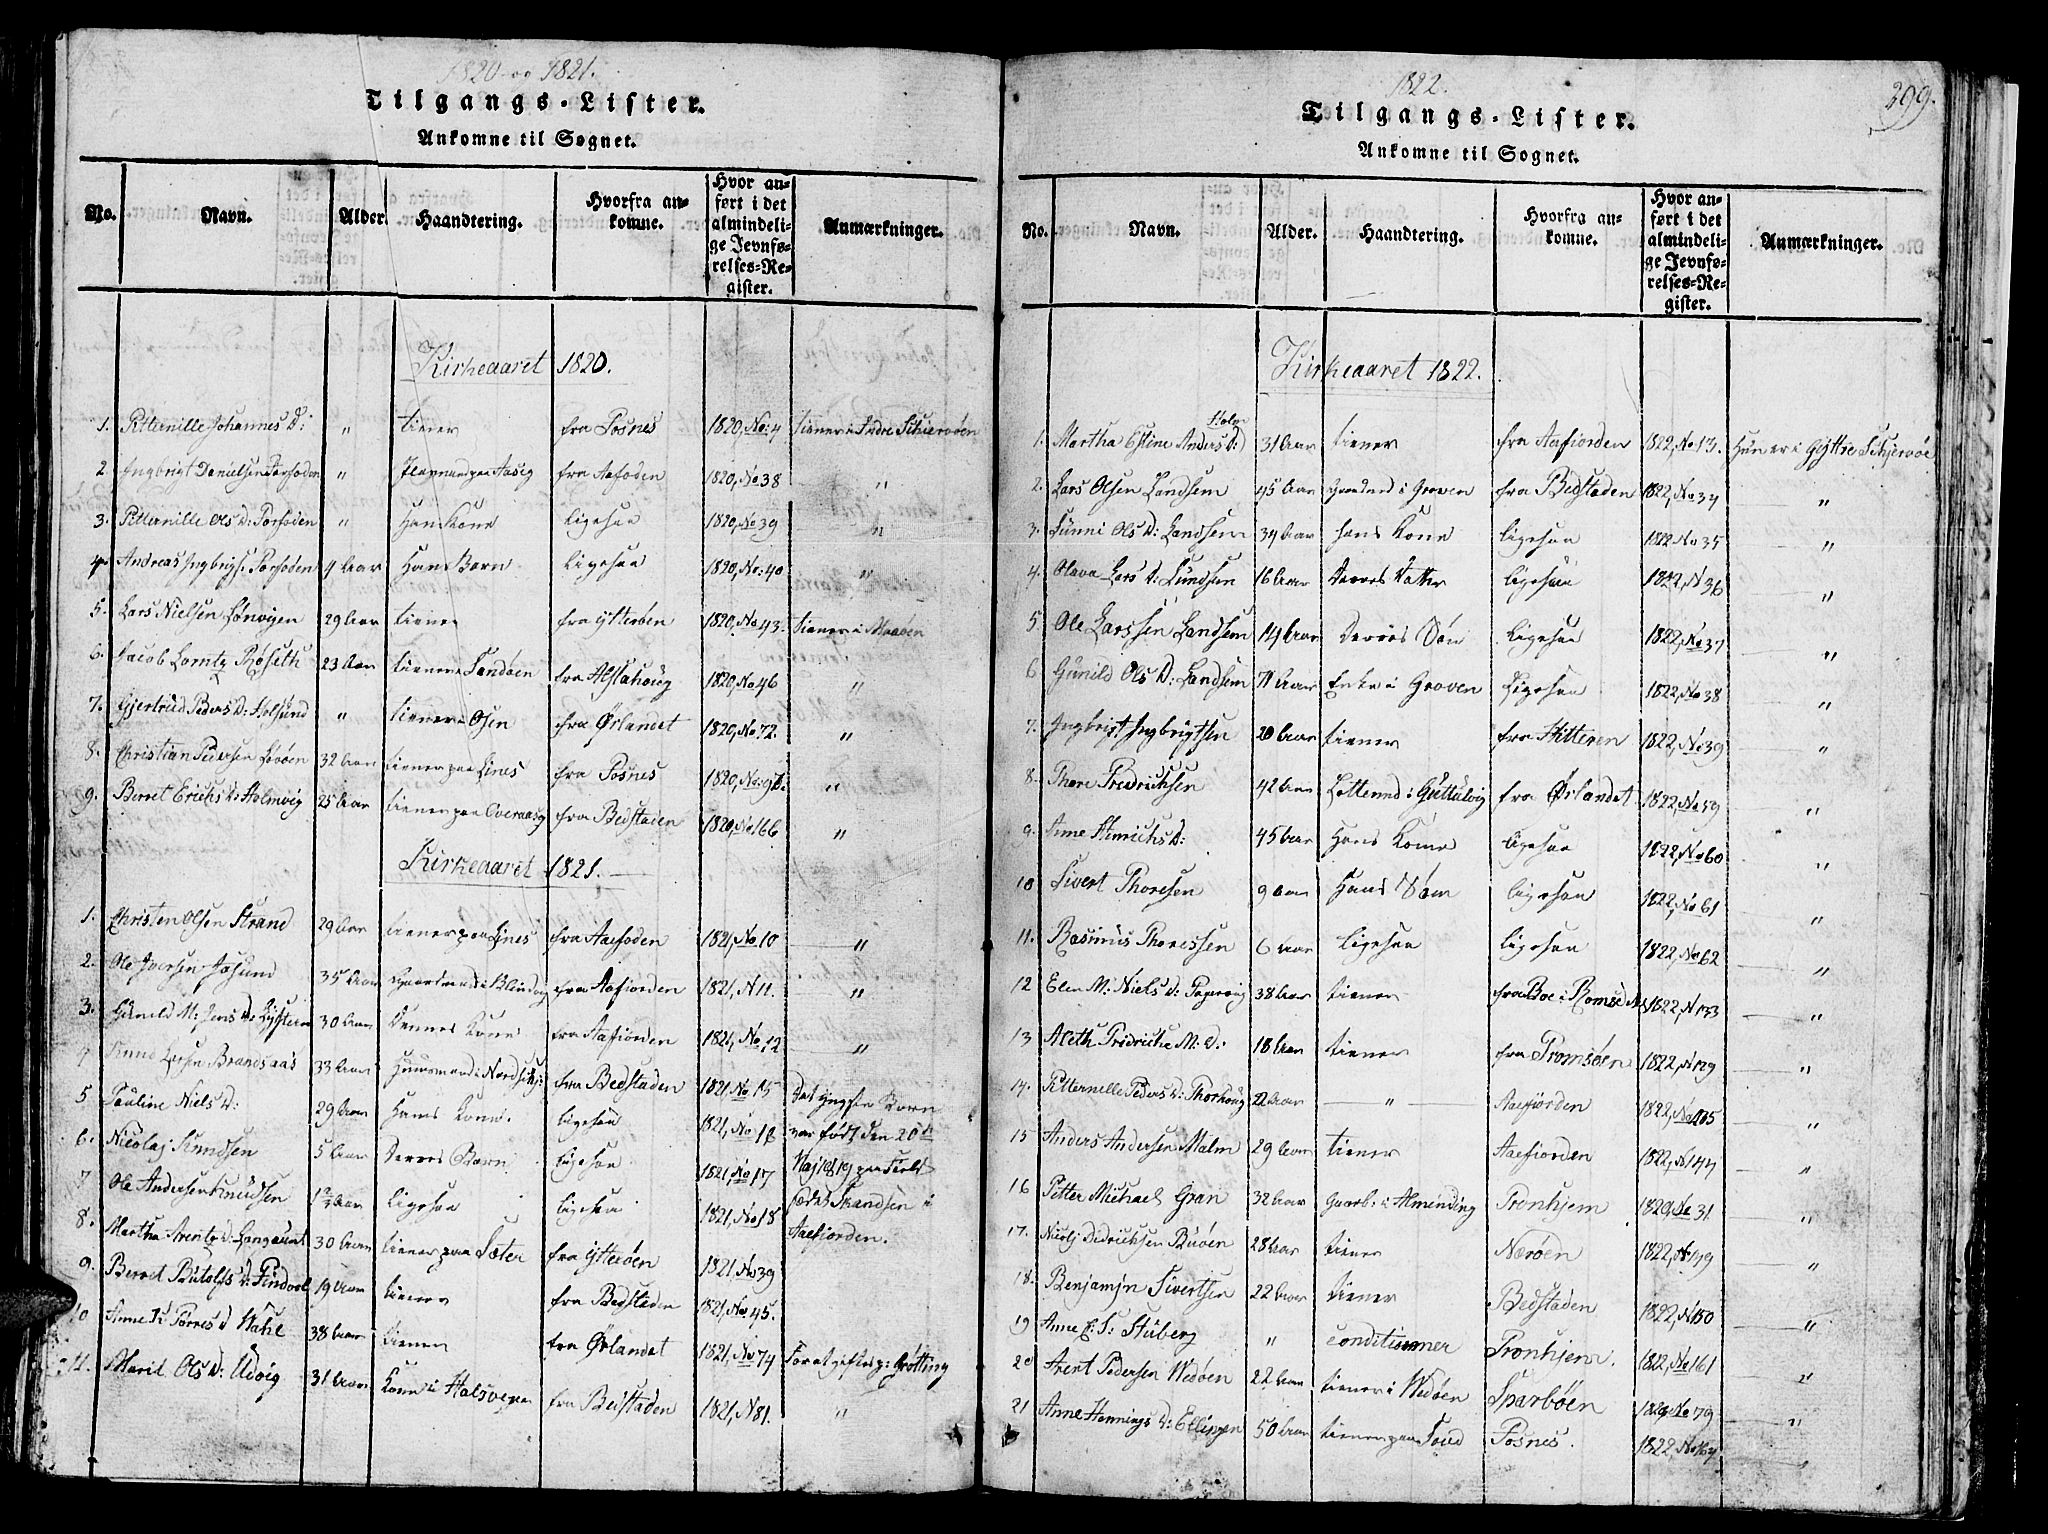 1820 og 1821.
Tilgangs-Lister.
Ankomne til Sognet.
No. Navn. Alder. Haandtering. Hvorfra ankomne. Hvor anført i det almindelige Jevnførelses-Register. Anmærkninger.
Kirkeaaret 1820.
1. Pitternille Johannes D: " tiener fra Fosnes 1820, No: 4 tiener i Indre Schiervøen
2. Ingbrigt Danielsen " fra Aafioden 1820, No 38 "
3. Pitternille Ols D: " Hans Kone ligesaa 1820, No 39 "
4. Andreas Ingbrigs. 4 Aar Hans Barn ligesaa 1820, No: 40 "
5. Lars Nielsen 29 Aar tiener fra Ytterøen 1820, No 43. tiener i
6. Jacob Lorntz Røseth 23 Aar tiener fra Alstahoug 1820, No 46 "
7. Gjertrud Peders D: " tiener i Osen fra Ørlandet 1820, No 72. "
8. Christian Pedersen 32 Aar tiener paa Lines fra Fosnes 1820, No: "
9. Berret Erichs D: Holmvig 25 Aar tiener paa fra Bedstaden 1820, No 166 "
Kirkeaaret 1821.
1. Christen Olsen Strand 29 Aar tiener paa Lines fra Aaefioden 1821, No 10 "
2. Ole Iversen 35 Aar Gaardmand i fra Aafiorden 1821, N 11. "
3. Gunild M: Jens D: 30 Aar Dennes Kone fra Aafiorden 1821, No 12 "
4 Knud Brandsaas 33 Aar Huusmand i fra Bedstaden 1821, No 15 Det yngste Barn
5 Pauline Niels D: 29 Aar Hans Kone. ligesaa 1821, No 16 var født den 20de
6. Nicolaj Knudsen 5 Aar Derres Barn ligesaa 1821, No 17 Maj 1819 paa
7 Ole Andersen Knudsen Aar ligesaa ligesaa 1821, No 18 i
8. Martha Arentz D: 30 Aar tiener paa Sæter fra Ytterøen 1821 No 39 Aaefiorden.
9. Berret D: 19 Aar tiener fra Bedstaden 1821, No 45.
10 Anne K: D Wahl 38 Aar tiener fra Ørlandet 1821, No 74 For at giftes p: Grøtting
11. Marit Ols D: Udvig 31 Aar Kone i fra Bedstaden 1821, N 81. "
1822.
299.
Tilgangs-Lister.
Ankomne til Sognet.
No. Navn. Alder. Haandtering. Hvorfra ankomne. Hvor anført i det almindelige Jevnførelses-Register. Anmærkninger.
Kirkeaaret 1822.
Holm
1. Martha Anders D: 31 Aar tiener fra Aafiorden 1822, No 13. Hun er i Schjervøe
2. Lars Olsen Landsem 45 Aar Gaardmd i Groven fra Bedstaden 1822, No 34 "
3. Gunni Ols D: Landsem 34 Aar hans Kone ligesaa 1822 No 35 "
4. Olava Lars D: 16 Aar Derres Datter ligesaa 1822, N 36 "
5 Ole Larssen Landsem 14 Aar Derres Søn ligesaa 1822, No 37 "
6 Gunild Ols D: Landsem 71 Aar Enke i Groven ligesaa 1822, No 38 "
7. Ingbrigt Ingbrigtsen 20 Aar tiener fra Hitteren 1822, No 39 "
8. Thore Fredrichsen 42 Aar fra Ørlandet 1822, No 59 "
9. Anne Hinrichs D: 45 Aar Hans Kone ligesaa 1822, No 60 "
10 Sivert Thoresen 9 Aar Hans Søn ligesaa 1822, No 61 "
11. Rasmus Thoressen 6 Aar ligesaa ligesaa 1822, No 62 "
12 Elen M: Niels D: 38 Aar tiener fra Boe i 1822, N 133 "
13 Aleth Fredriche M: D: 18 Aar tiener fra Tromsøen 1822, N 129 "
14. Pitternelle Peders D: Thorhoug 22 Aar " Aaefiorden 1822, No 105 "
15 Anders Andersen Malm 29 Aar tiener Aaefiorden 1822, N 144 "
16 Pitter Michael Gran 32 Aar Gaardb: i Almending Tronhjem 1820, No 31. "
17. Didrichsen 28 Aar tiener Nærøen 1822, N 179 "
18. Benjamin Sivertsen 22 Aar tiener Bedstaden 1822, N 150 "
19 Anne E: S: Stuberg " conditioner Tronhjem. 1822, No 161 "
20 Arent Pedersen Wedøen 22 Aar tiener i Wedøen Sparbøen 1820, No 79 "
21 Anne Hennings D: 50 Aar tiener paa Fosnes. 1822, No 164 "